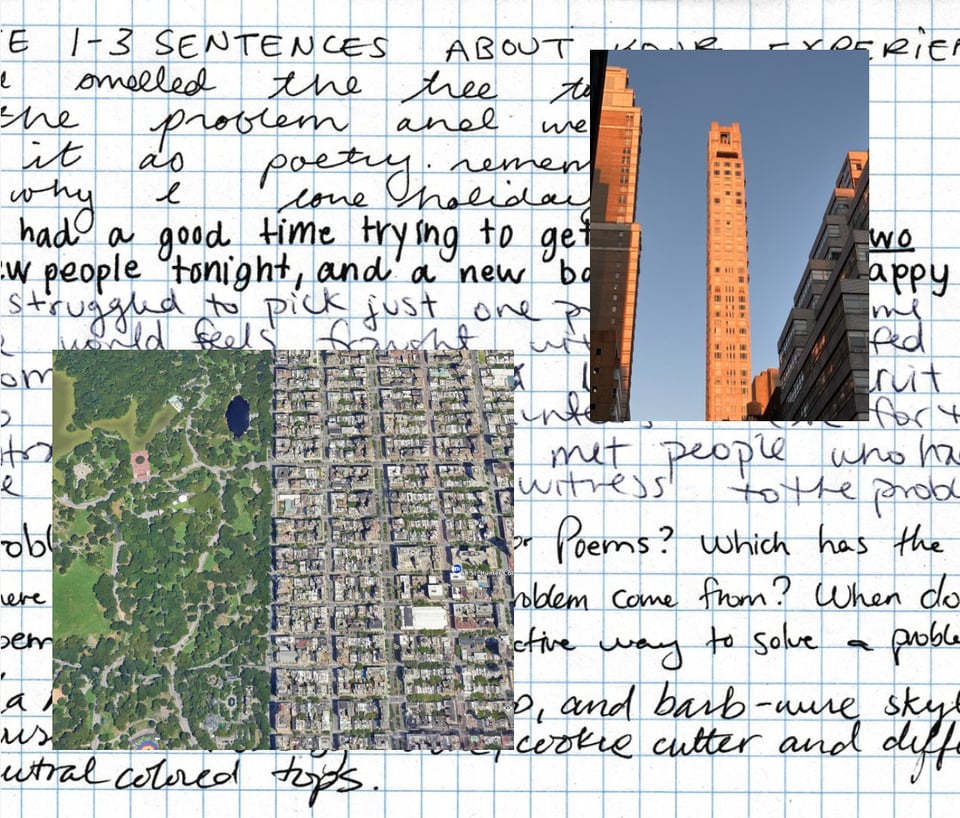 E 1-3 SENTENCES ABOUT YOUR EXPERIEN
smelled the tree to
the problem and we
it as poetry. remem
why I love holiday
had a good time trying to get two
w people tonight, and a new bo appy
struggled to pick just one p me
world feels fraught wit fed
om ruit
inte for t
met people who ha
e witness to the probl
obl or Poems? Which has the
ere roblem come from? When do
oem ctive way to solve a proble
a o, and barb-wire skyl
us cookie cutter and diffe
utral colored tops.